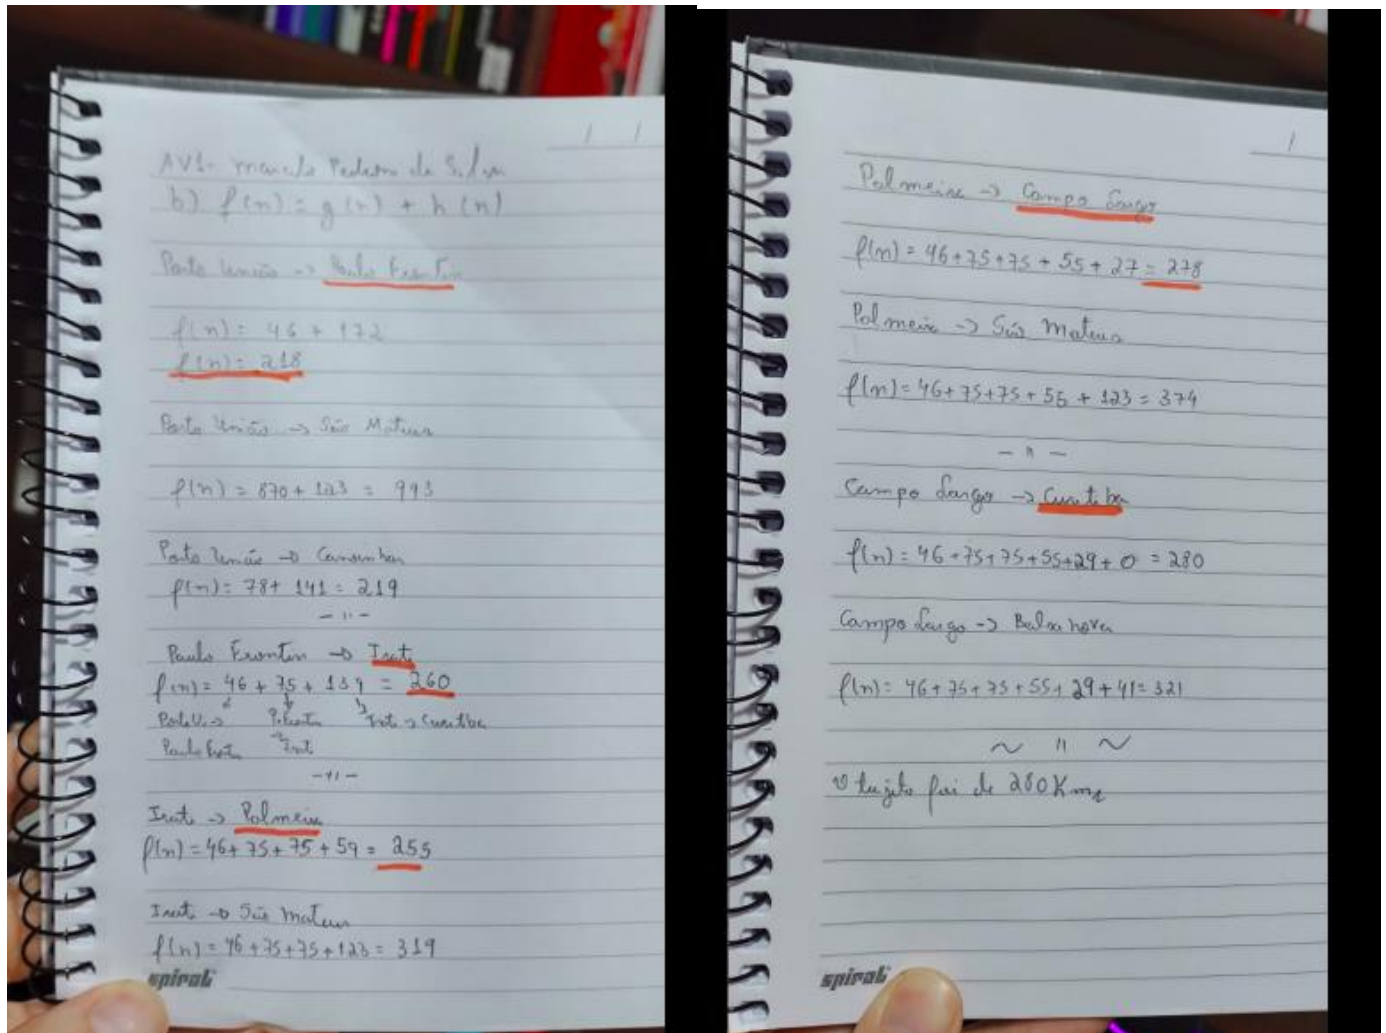 AV1- Marcelo Pedem da Silva
b) f(n) = g(n) + h(n)
Porto União -> Paulo Frontin
f(n) = 46 + 172
f(n) = 218
Porto União -> São Mateus
f(n) = 870 + 123 = 993
Porto União -> Canoinhas
f(n) = 78 + 141 = 219
- 11 -
Paulo Frontin -> Irati
f(n) = 46 + 75 + 139 = 260
Porto U. -> P. Frontin Irat -> Curitba
Paulo Front. -> Irat
- 11 -
Irati -> Palmeira
f(n) = 46 + 75 + 75 + 59 = 255
Irati -> São Mateus
f(n) = 46 + 75 + 75 + 123 = 319
spiral
Palmeira -> Campo Largo
f(n) = 46 + 75 + 75 + 55 + 27 = 278
Palmeira -> São Mateus
f(n) = 46 + 75 + 75 + 55 + 123 = 374
- 11 -
Campo Largo -> Curitiba
f(n) = 46 + 75 + 75 + 55 + 29 + 0 = 280
Campo Largo -> Balsa nova
f(n) = 46 + 75 + 75 + 55 + 29 + 41 = 321
~ 11 ~
O trajeto foi de 280 Kms
spiral